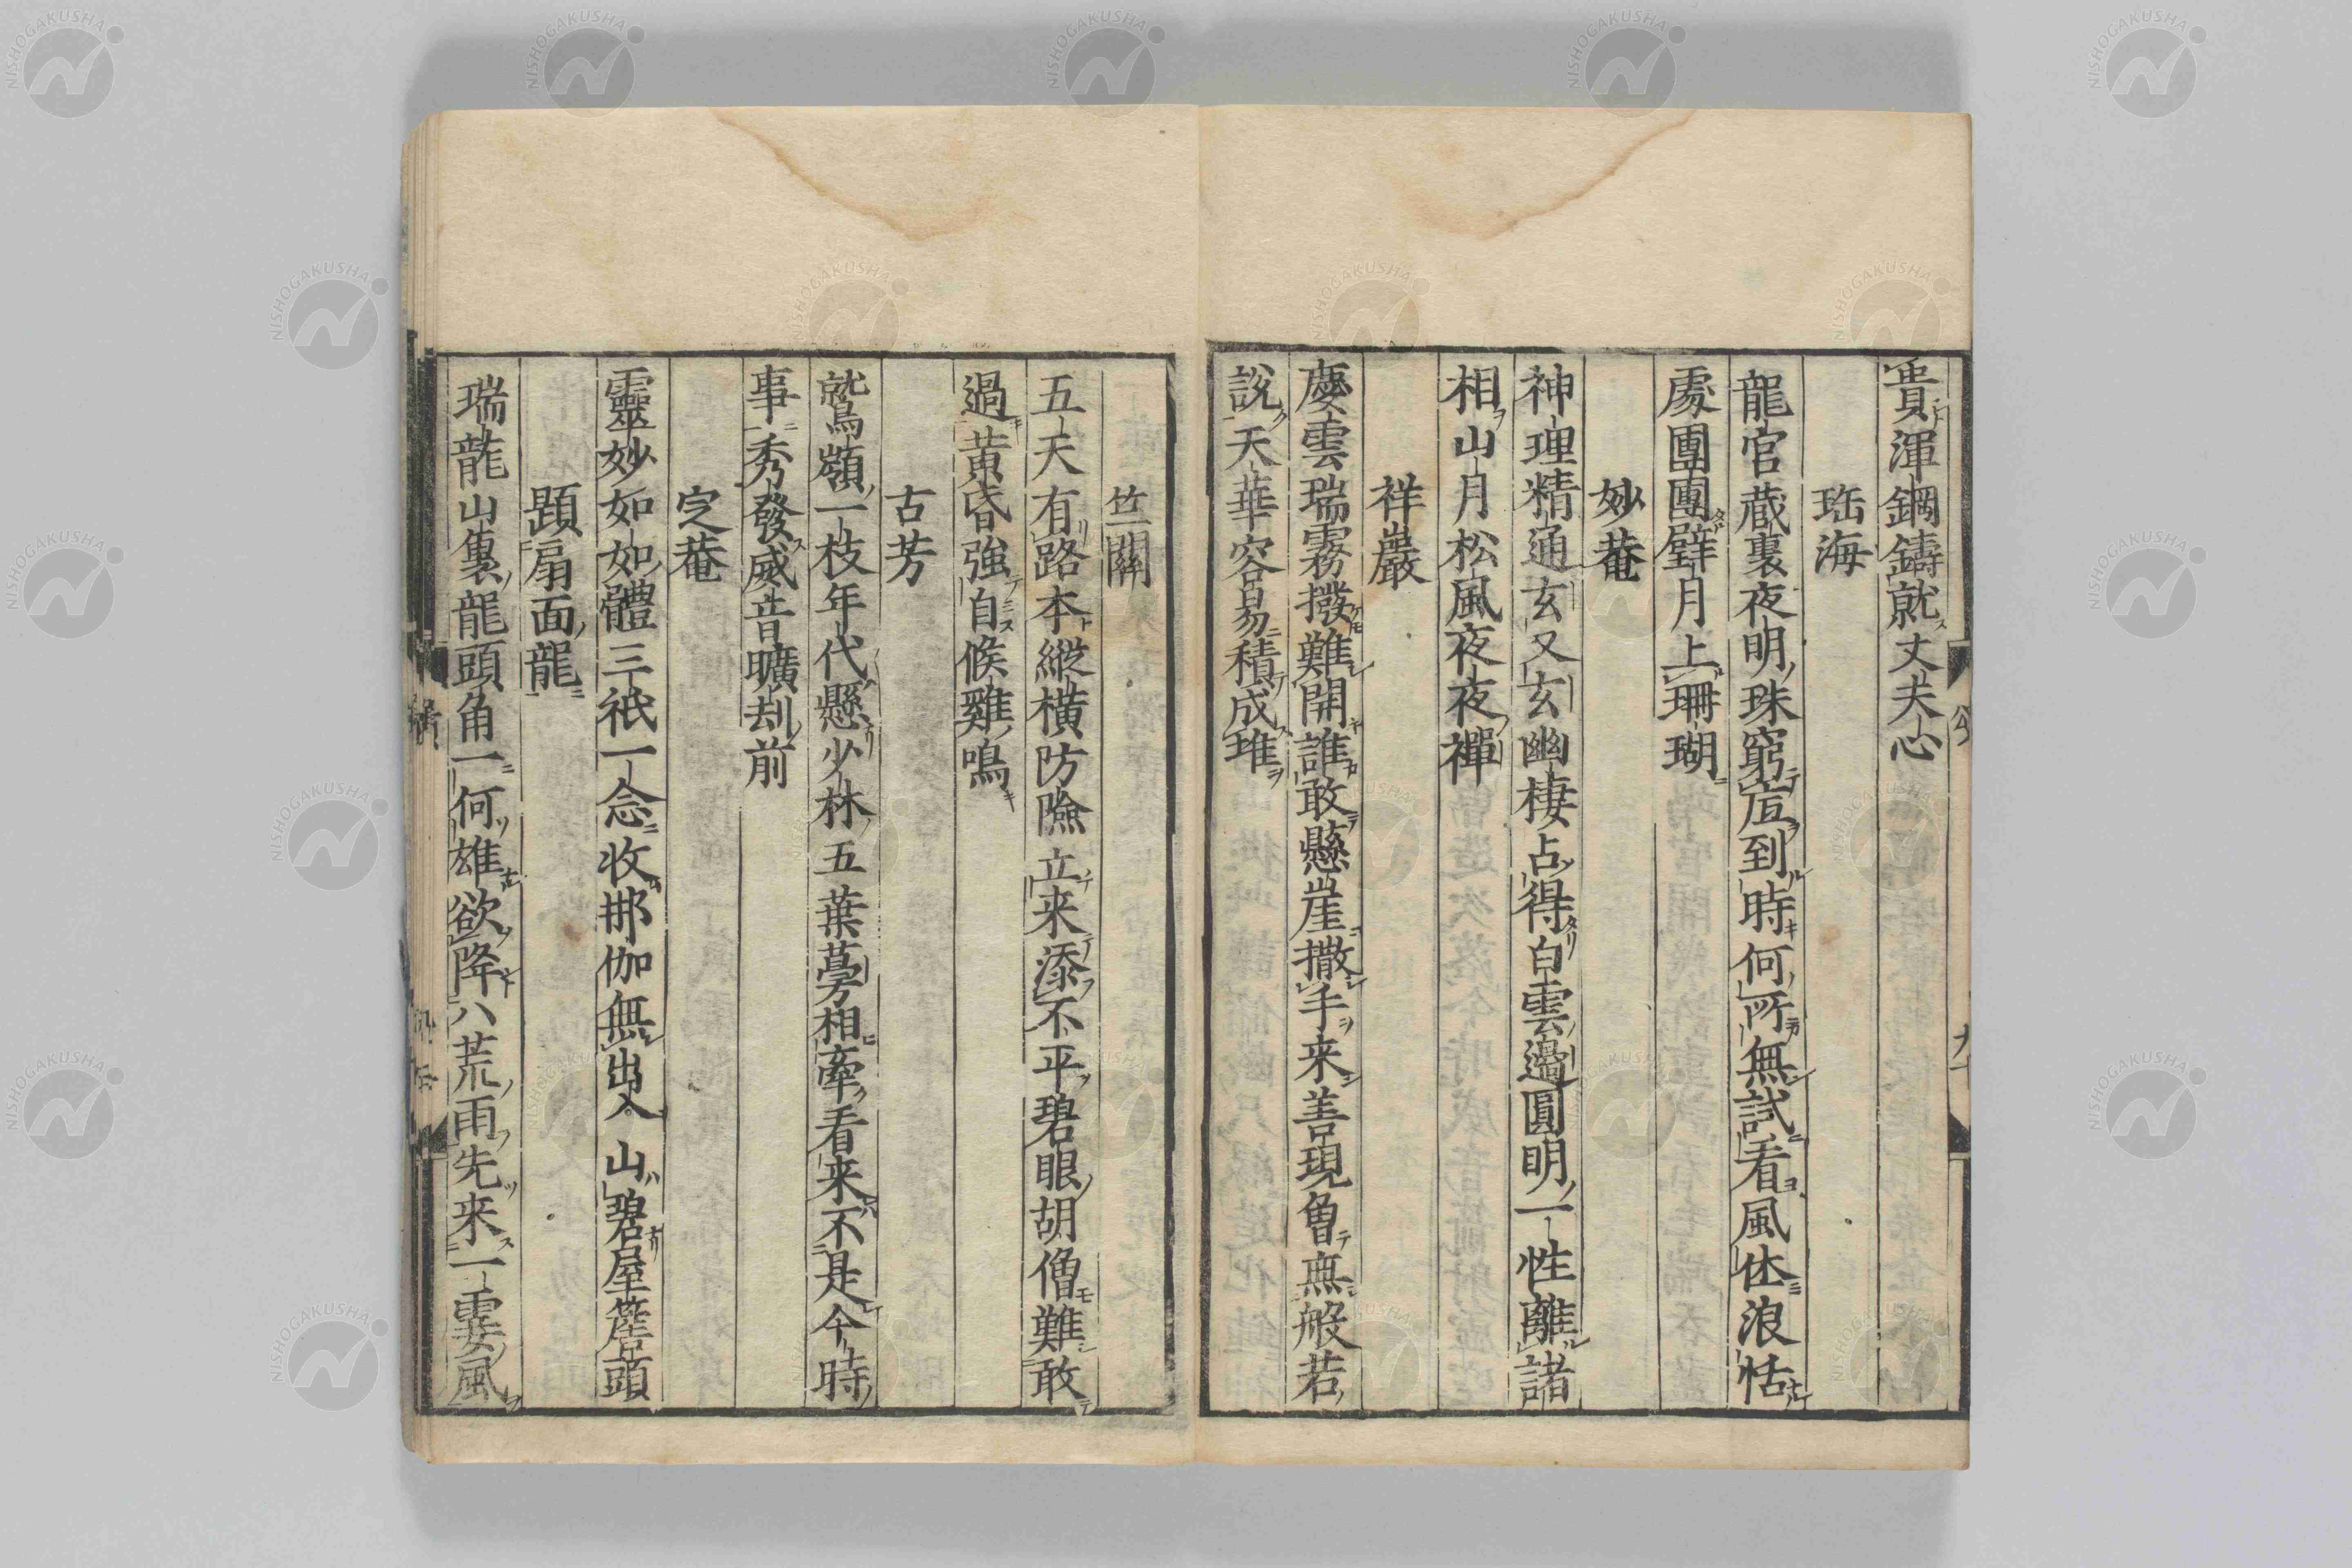 賁渾鋼鑄就丈夫心
珤海
龍宮蔵裏夜明珠窮底到時何所無試看風休浪恬
處團團壁月上珊瑚
妙菴
神理精通玄又玄幽棲占得白雲邊圓明一性離諸
相山月松風夜夜禪
祥巖
慶雲瑞霧撥難開誰敢懸崖撒手来善現曾無般若
說天華容易積成堆
竺關
五天有路本縱横防險立来添不平碧眼胡僧難敢
過黄昏強自候雞鳴
古芳
鷲嶺一枝年代懸少林五葉蔓相牽看来不是今時
事秀發威音曠刦前
定菴
靈妙如如體三祇一念收那伽無出入山碧屋簷頭
題扇面龍
瑞龍山裏龍頭角一何雄欲降八荒雨先来一霎風
NISHOGAKUSHA